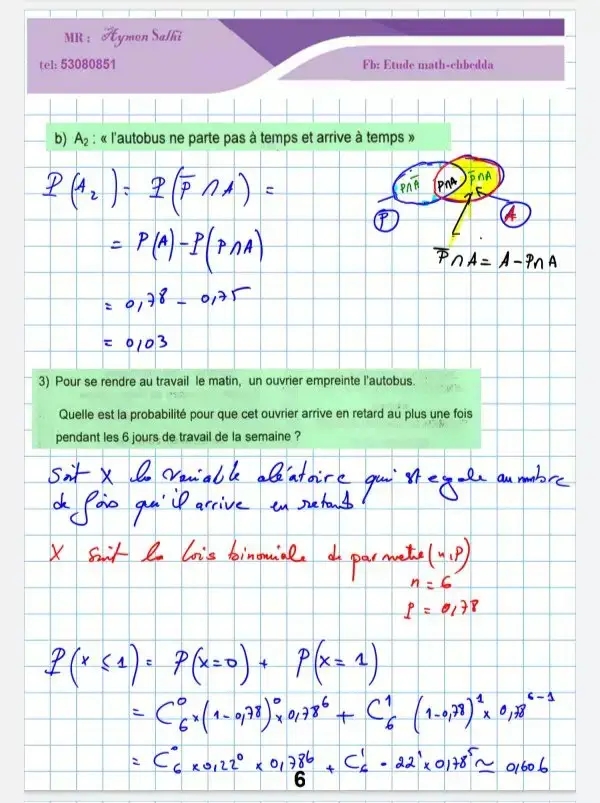 MR : Aymon Salhi
tel: 53080851
Fb: Etude math-chbedda
b) A₂ : « l'autobus ne parte pas à temps et arrive à temps »
P(A₂) = P(P̅ ∩ A) =
= P(A) - P(P∩A)
= 0,78 - 0,75
= 0,03
P∩A̅ P∩A P̅∩A
P A
P̅∩A = A - P∩A
3) Pour se rendre au travail le matin, un ouvrier empreinte l'autobus.
Quelle est la probabilité pour que cet ouvrier arrive en retard au plus une fois
pendant les 6 jours de travail de la semaine ?
Soit X la variable aléatoire qui est egale au nombre
de fois qu'il arrive en retard
X suit la lois binomiale de parametre (n,P)
n = 6
P = 0,78
P(X ≤ 1) = P(X=0) + P(X=1)
= C₆⁰ × (1-0,78)⁰ × 0,78⁶ + C₆¹ (1-0,78)¹ × 0,78⁶⁻¹
= C₆⁰ × 0,22⁰ × 0,78⁶ + C₆¹ · 22¹ × 0,78⁵ ≃ 0,606
6